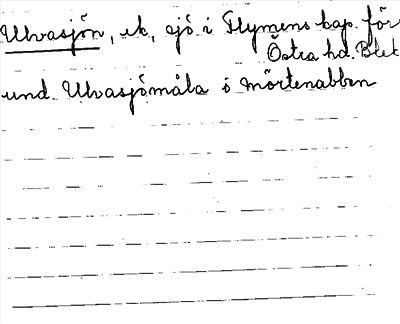 Ulvasjön, ek, sjö i Flymens kap. för
Östra hd. Blek
und. Ulvasjömåla i Mörtenabben